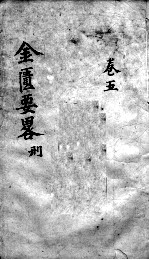 卷五
金匱要畧
刑